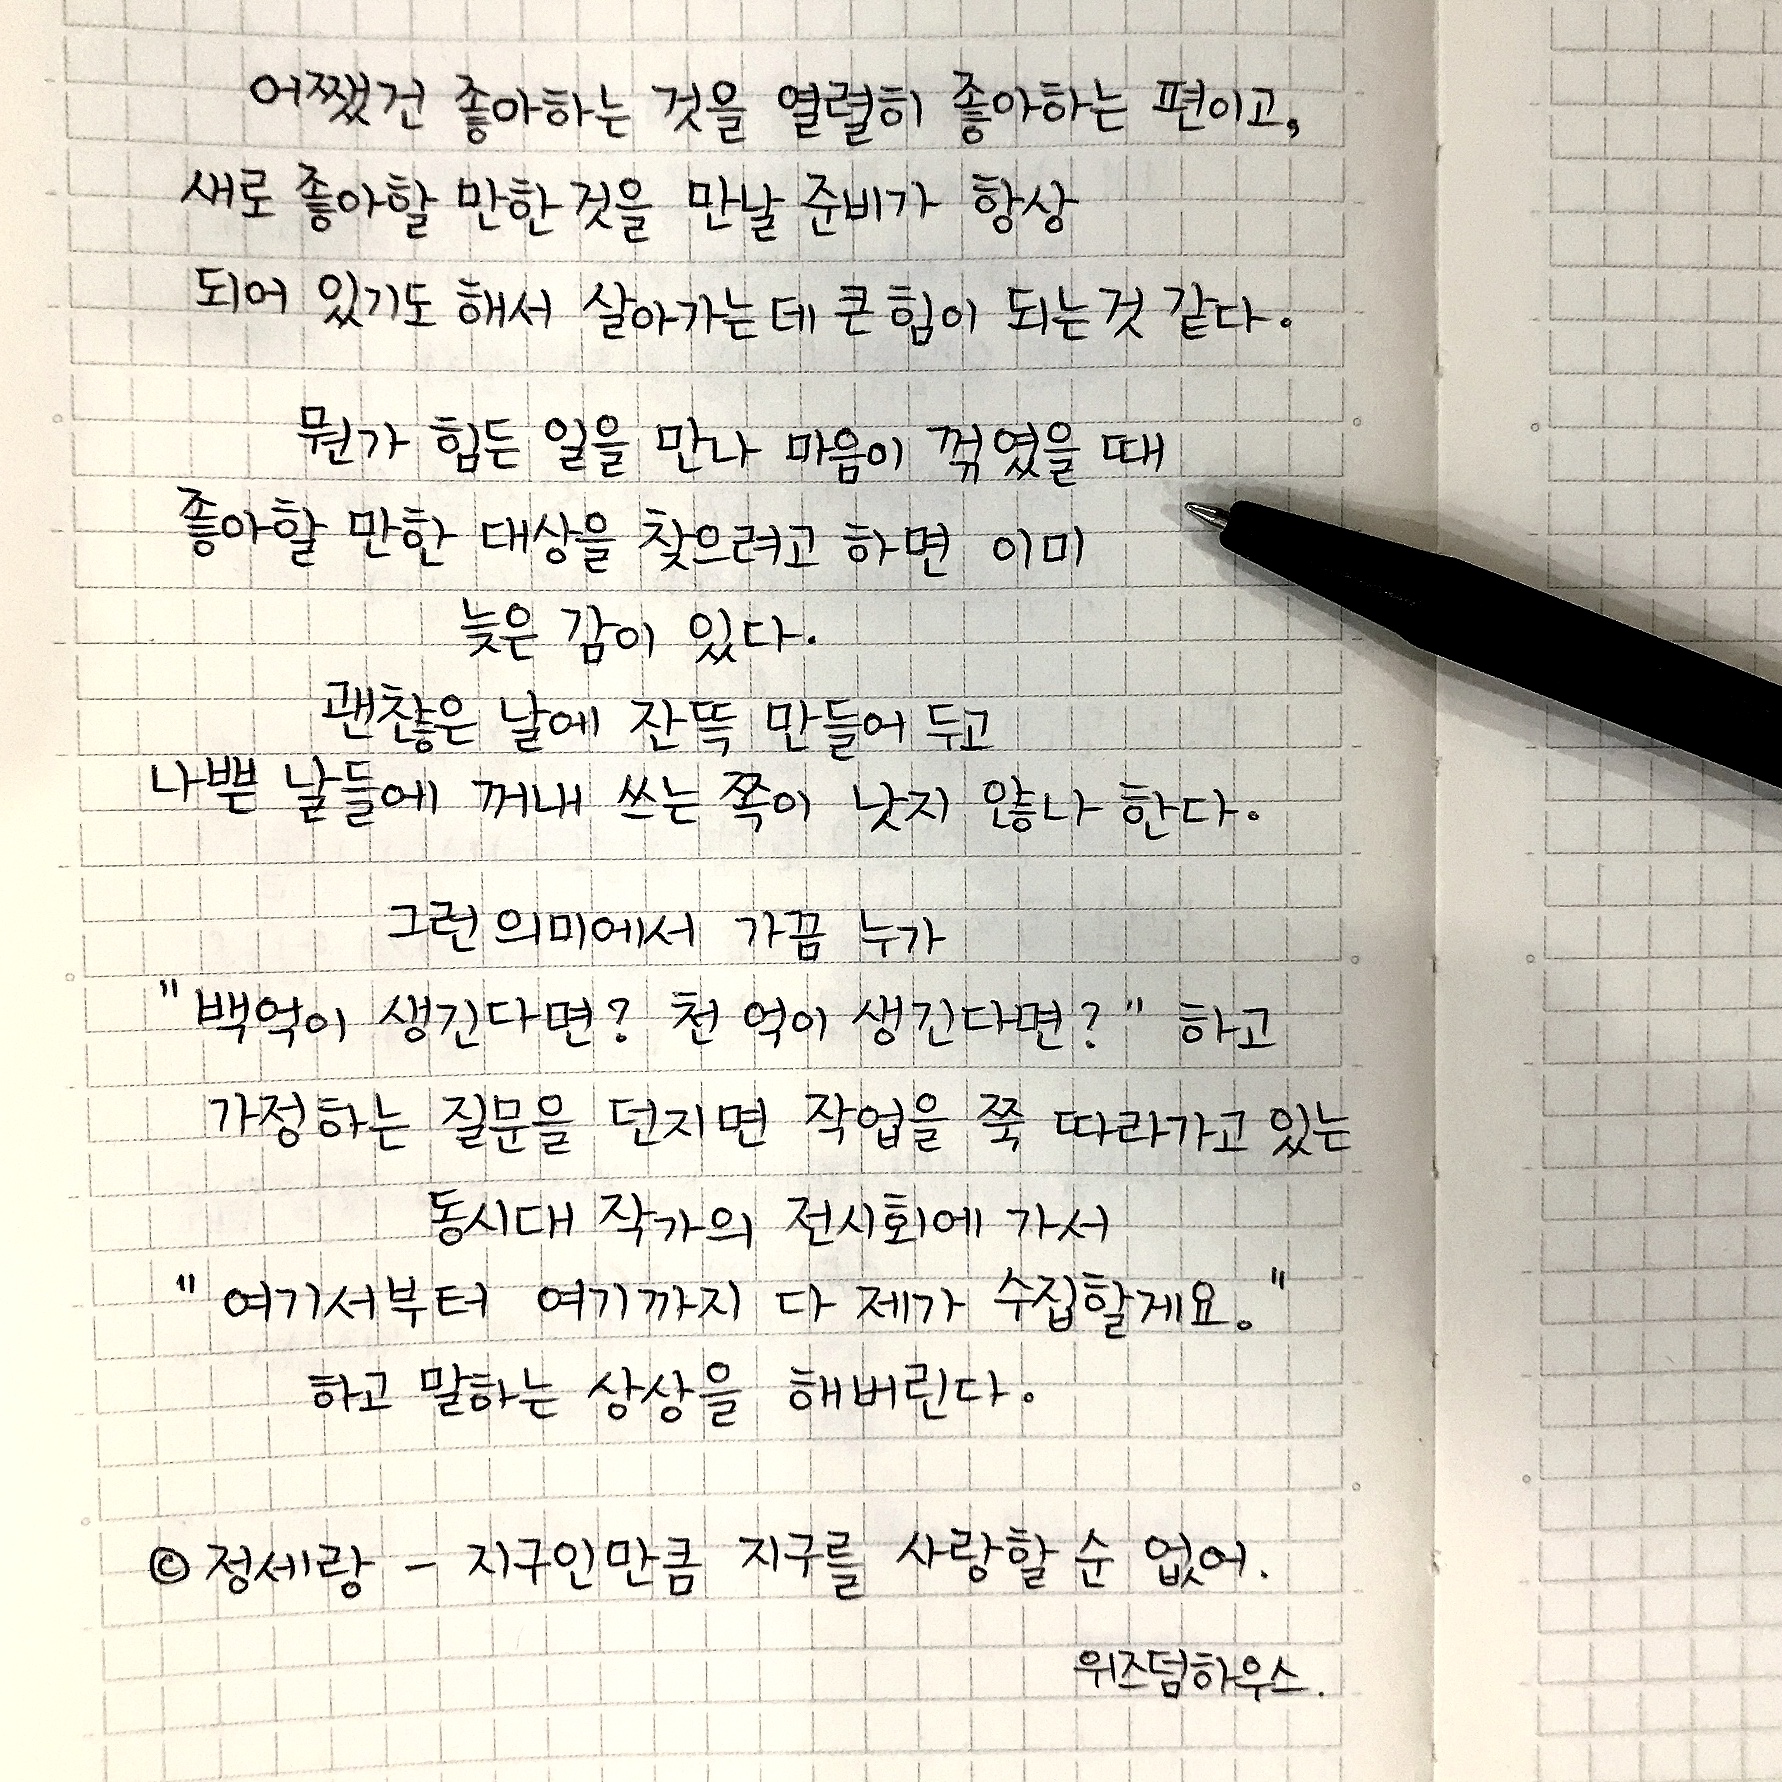 어쨌건 좋아하는 것을 열렬히 좋아하는 편이고,
새로 좋아할 만한 것을 만날 준비가 항상
되어 있기도 해서 살아가는 데 큰 힘이 되는 것 같다.
뭔가 힘든 일을 만나 마음이 꺾였을 때
좋아할 만한 대상을 찾으려고 하면 이미
늦은 감이 있다.
괜찮은 날에 잔뜩 만들어 두고
나쁜 날들에 꺼내 쓰는 쪽이 낫지 않나 한다.
그런 의미에서 가끔 누가
"백억이 생긴다면? 천 억이 생긴다면?" 하고
가정하는 질문을 던지면 작업을 쭉 따라가고 있는
동시대 작가의 전시회에 가서
"여기서부터 여기까지 다 제가 수집할게요."
하고 말하는 상상을 해버린다.
© 정세랑 - 지구인만큼 지구를 사랑할 순 없어.
위즈덤하우스.